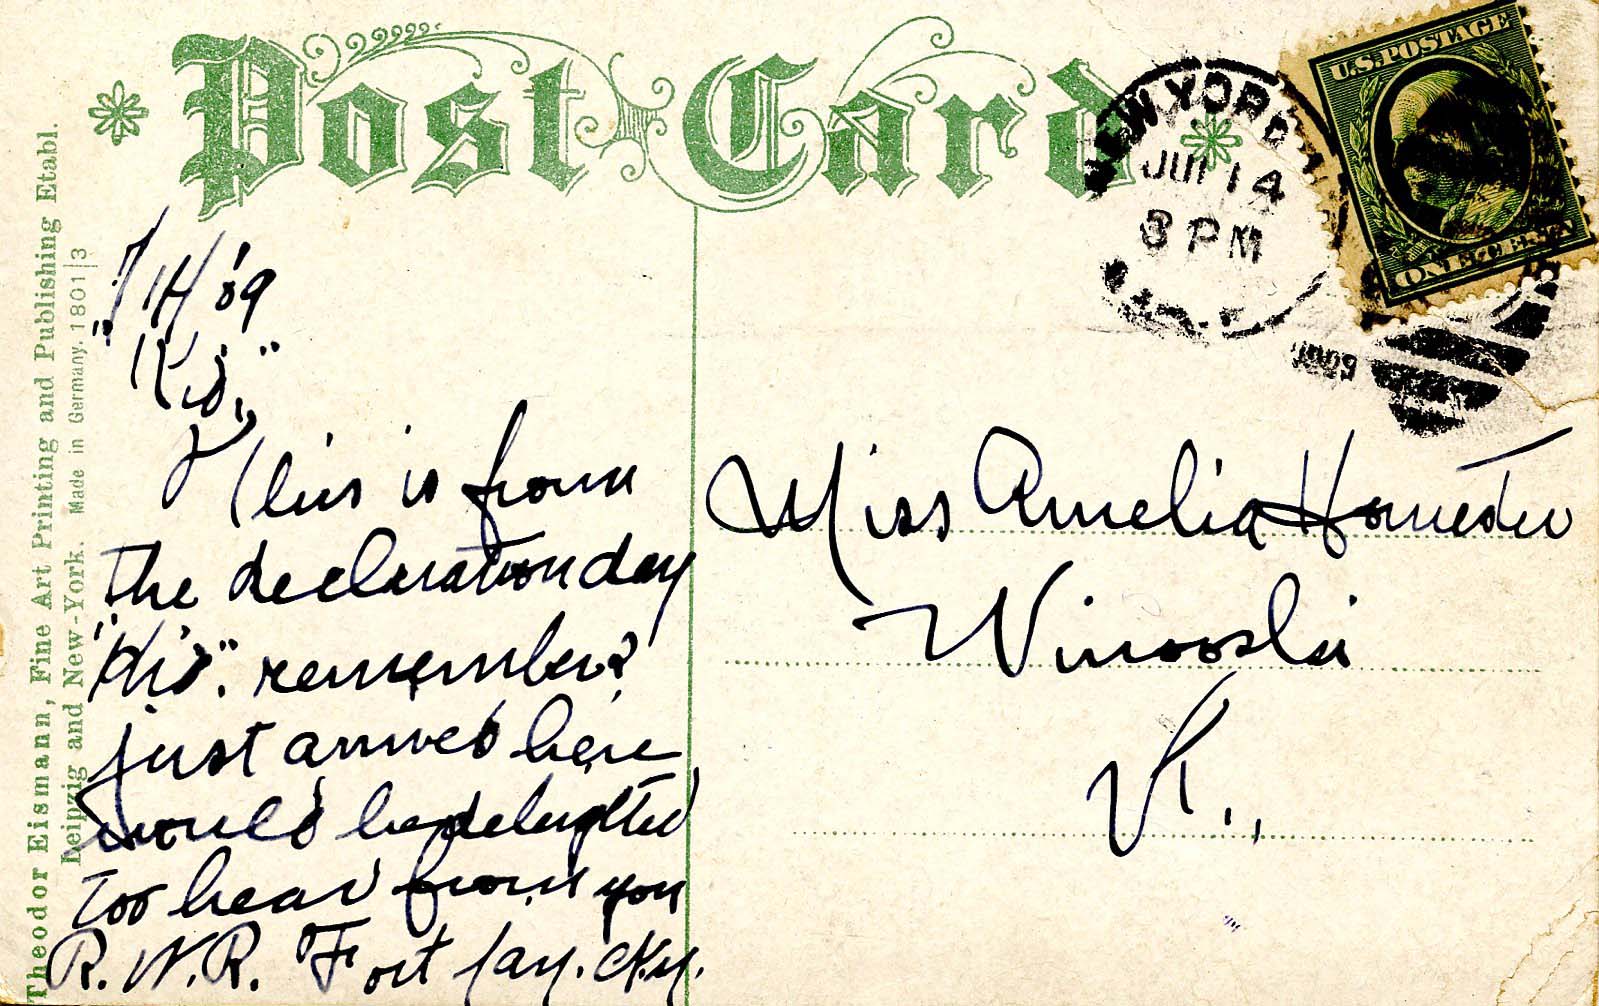 Post Card
NEW YORK
JUL 14
8 PM
1909
U.S. POSTAGE
ONE CENT
7/14/09
"Kid"
This is from
the declaration day
"Kid". remember?
just arrived here
would be delighted
too hear from you
R.W.R. Fort Jay. N.Y.
Miss Amelia
Winooski
Vt.,
Theodor Eismann, Fine Art Printing and Publishing Etabl.
Leipzig and New-York. Made in Germany. 1801|3